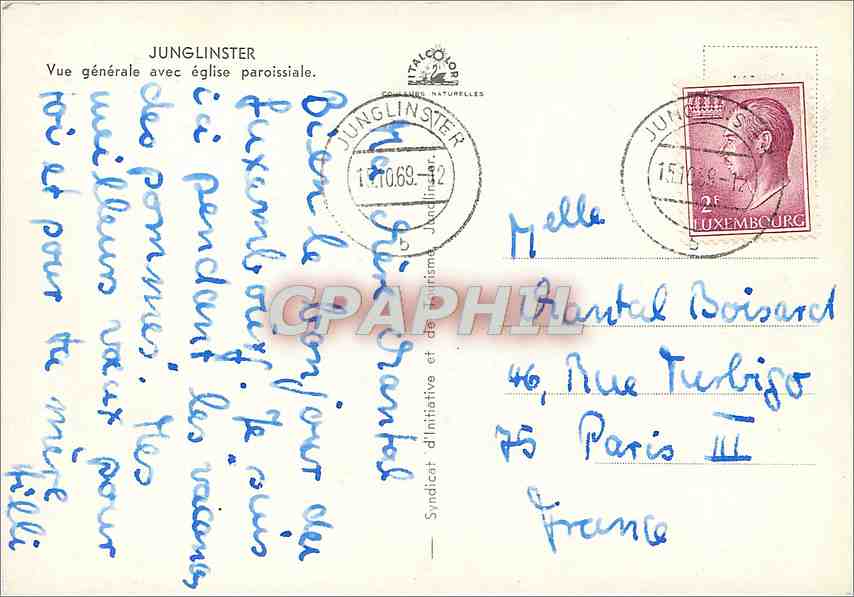 JUNGLINSTER
Vue générale avec église paroissiale.
ITALCOLOR
COULEURS NATURELLES
JUNGLINSTER
15.10.69.-12
b
JUNGLINS
15.10.69.-12
b
2F
LUXEMBOURG
Syndicat d'Initiative et de Tourisme, Junglinster.
Ma chère Chantal
Bien le bonjour der
Luxembourg. Je suis
ici pendant les vacances
des pommes. Mes
meilleurs vœux pour
toi et pour ta mère
Lilli
Melle
Chantal Boisard
46, Rue Turbigo
75 Paris III
France
CPARHIL